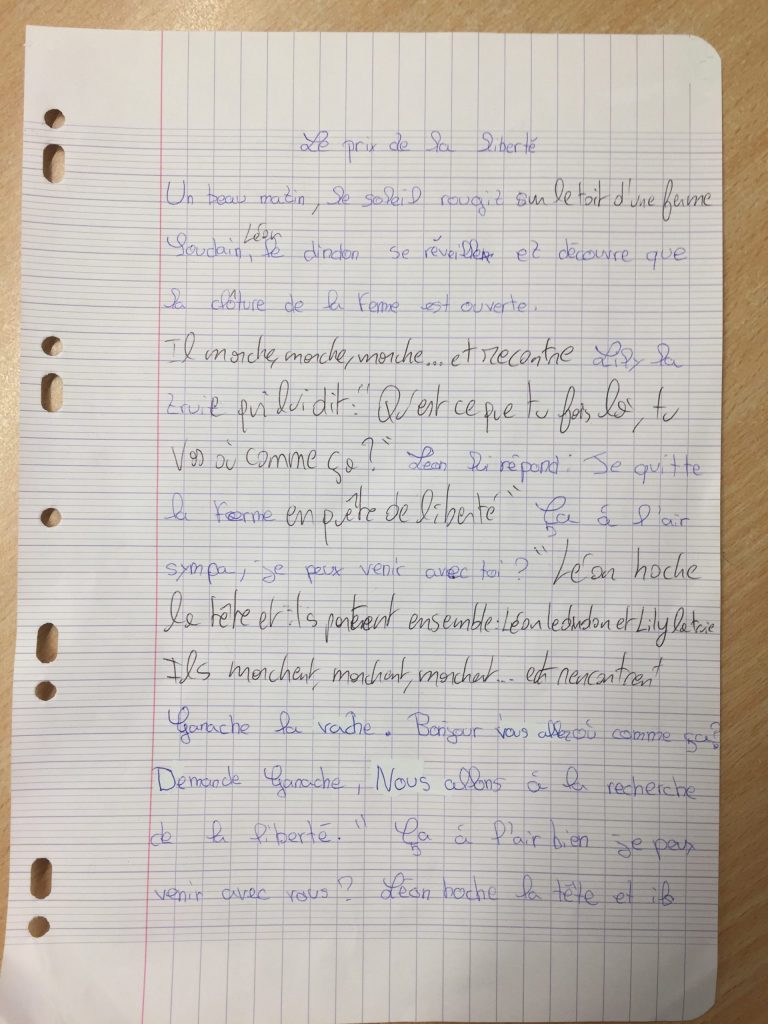 Le prix de la liberté
Un beau matin, le soleil rougit sur le toit d'une ferme
Soudain, Léon le dindon se réveille et découvre que
la clôture de la ferme est ouverte.
Il marche, marche, marche... et recontre Lily la
truie qui lui dit : "Qu'est ce que tu fais là, tu
vas où comme ça ?" Léon lui répond : Je quitte
la ferme en quête de liberté" Ça à l'air
sympa, je peux venir avec toi ? "Léon hoche
la tête et ils partent ensemble : Léon le dindon et Lily la truie
Ils marchent, marchent, marchent... et rencontrent
Ganache la vache. Bonjour vous allez où comme ça ?
Demande Ganache, Nous allons à la recherche
de la liberté." Ça à l'air bien je peux
venir avec vous ? Léon hoche la tête et ils